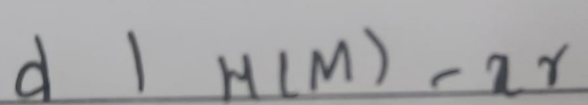 d | H(M) - xr